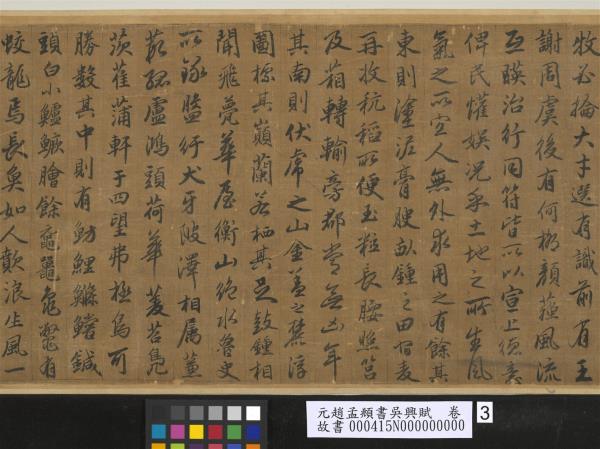 牧必掄大才選有識前有王
謝周虞後有何柳顏蘓風流
互暎治行同符皆所以宣上德意
俾民懽娛況乎土地之所生風
氣之所宜人無外求用之有餘其
東則塗泥膏腴畝鍾之田宿麦
再收秔稻所便玉粒長腰照筥
及箱轉輸旁郡常無凶年
其南則伏虎之山金蓋之麓浮
圖標其巔蘭若栖其足鼓鍾相
聞飛甍華屋衡山絶水魯史
所錄盤紆犬牙陂澤相属蒹
葭菰蘆鴻頭荷華菱苕鳧
茨萑蒲軒于四望弗極烏可
勝數其中則有魴鯉鰷鱨鍼
頭白小鱸鱖膾餘黿鼉龜鼈有
蛟龍焉長魚如人歕浪生風一
元趙孟頫書吳興賦　卷
故書 000415N000000000
3